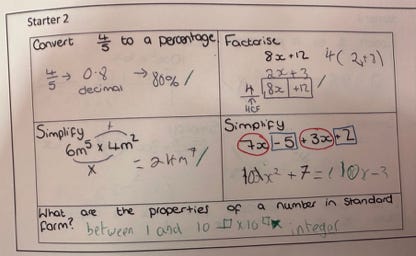 Starter 2
Convert 4/5 to a percentage.
4/5 → 0.8 → 80% /
decimal
Factorise
8x+12 4(2x+3)
2x+3
4 8x +12 /
↑
HCF
Simplify
+
6m⁵ x 4m²
x = 24m⁷ /
Simplify
7x - 5 + 3x + 2
x² + 7 = 10x-3
What are the properties of a number in standard
form? between 1 and 10 □ x10□ integer